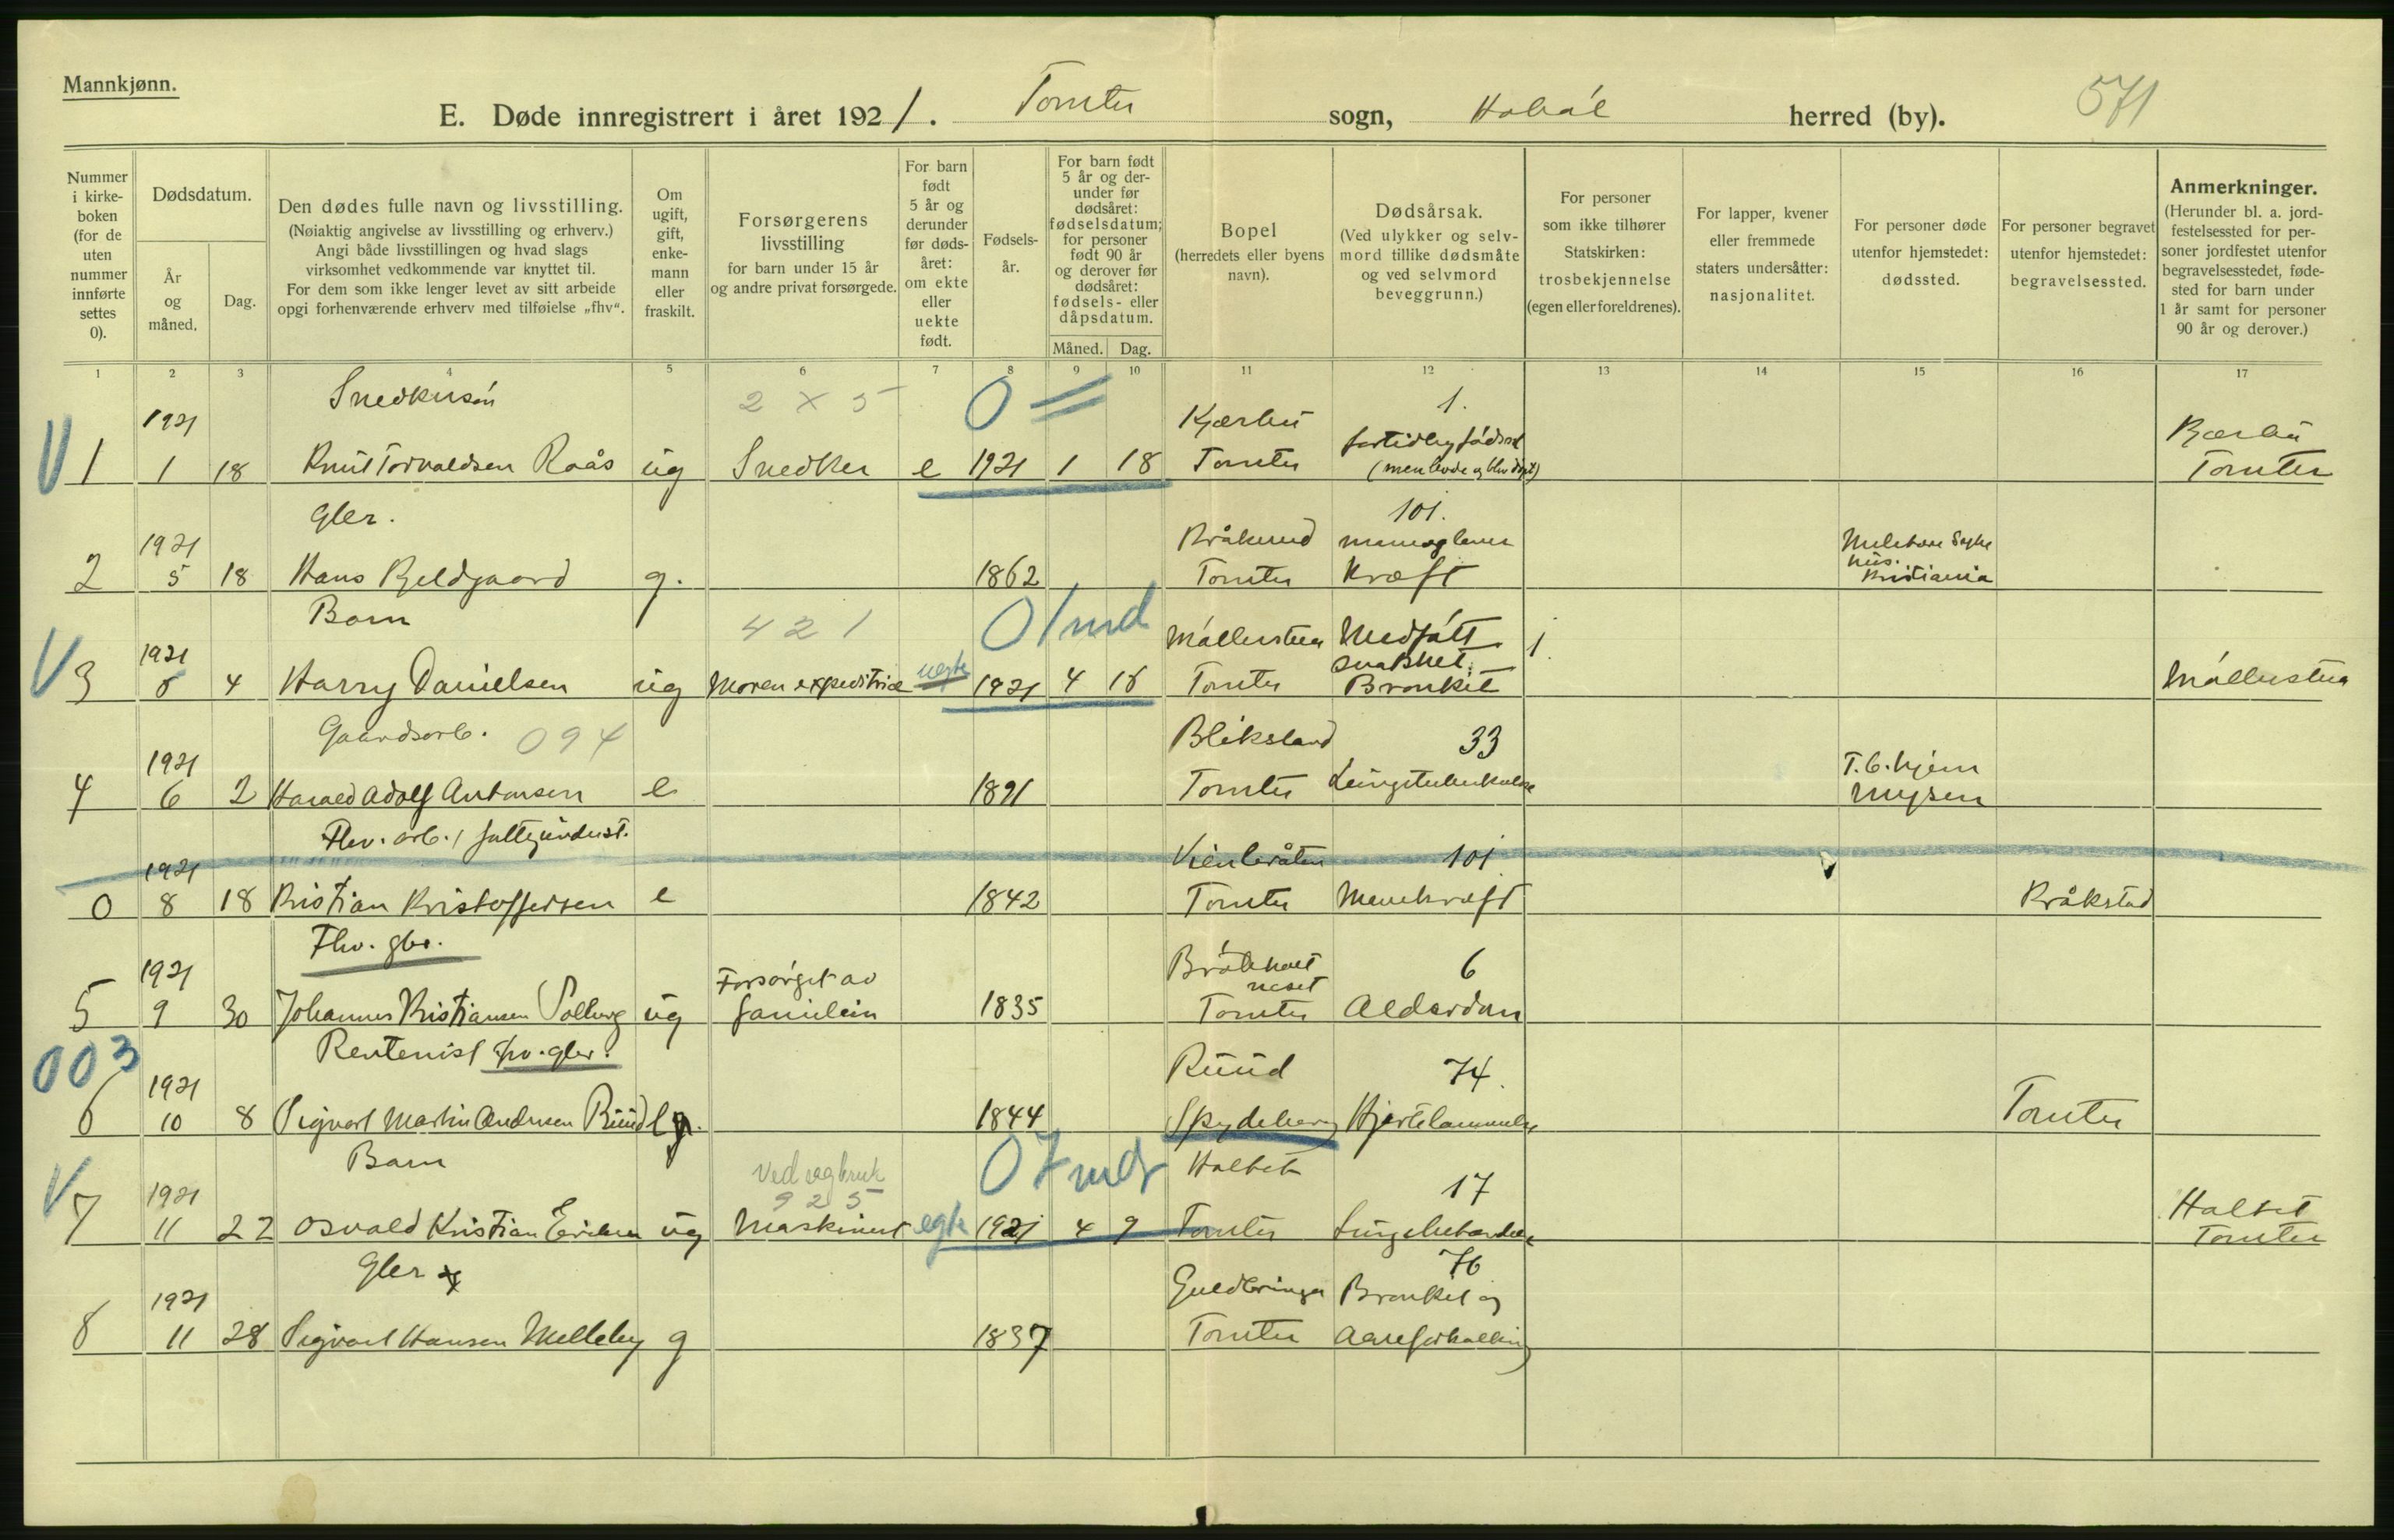 Mannkjønn.
E. Døde innregistrert i året 1921. Tomter sogn, Hobøl herred (by). 571
Nummer i kirke-boken (for de uten nummer innførte settes 0).
Dødsdatum.
År og måned.
Dag.
Den dødes fulle navn og livsstilling.
(Nøiaktig angivelse av livsstilling og erhverv.)
Angi både livsstillingen og hvad slags
virksomhet vedkommende var knyttet til.
For dem som ikke lenger levet av sitt arbeide
opgi forhenværende erhverv med tilføielse „fhv“.
Om ugift, gift, enke-mann eller fraskilt.
Forsørgerens livsstilling
for barn under 15 år
og andre privat forsørgede.
For barn født 5 år og derunder før døds-året: om ekte eller uekte født.
Fødsels-år.
For barn født 5 år og der-under før dødsåret: fødselsdatum; for personer født 90 år og derover før dødsåret: fødsels- eller dåpsdatum.
Måned. Dag.
Bopel
(herredets eller byens navn).
Dødsårsak.
(Ved ulykker og selv-mord tillike dødsmåte og ved selvmord beveggrunn.)
For personer som ikke tilhører Statskirken: trosbekjennelse (egen eller foreldrenes).
For lapper, kvener eller fremmede staters undersåtter: nasjonalitet.
For personer døde utenfor hjemstedet: dødssted.
For personer begravet utenfor hjemstedet: begravelsessted.
Anmerkninger.
(Herunder bl. a. jord-festelsessted for per-soner jordfestet utenfor begravelsesstedet, føde-sted for barn under 1 år samt for personer 90 år og derover.)
1 2 3 4 5 6 7 8 9 10 11 12 13 14 15 16 17
1921 2 x 5 0 1.
V 1 1 18 Knut Torvaldsen Raås ug Snedker e 1921 1 18 Tomter fortidlig født Tomter
Gbr. 101.
1921
2 5 18 Hans Kjeldgaard g. 1862 Tomter Kræft Kristiania
Barn 421 0 1 md Møllerstua Medføtt
V 1921 svakhet. 1
3 5 4 Harry Danielsen ug Moren expeditrice uegte 1921 4 18 Tomter Bronkit Møllerstua
Gaardsarb. 094 Bliksland 33
1921 T.b.hjem
4 6 2 Harald Adolf Antonsen e 1891 Tomter Lungetuberkulose Mysen
Fhv. arb. 101
1921
0 8 18 Kristian Kristoffersen e 1842 Tomter Mavekræft Kråkstad
Fhv. gbr. 6
1921 Forsørget av
5 9 30 Johannes Kristiansen Solberg ug familien 1835 Tomter Alderdom
003 Rentenist fhv. gbr. Ruud 74.
1921
6 10 8 Sigvart Martin Andersen Ruud g. 1844 Spydeberg Hjertelammelse Tomter
Barn 0 7 mdr Holtet
V 1921 Ved sagbruk 925 17 Holtet
7 11 22 Osvald Kristian Eriksen ug Maskinist egte 1921 4 9 Tomter Lungebetændelse Tomter
Gbr 76
1921 Guldbringa Bronkit og
8 11 28 Sigvart Hansen Melleby g 1837 Tomter Aareforkalkning